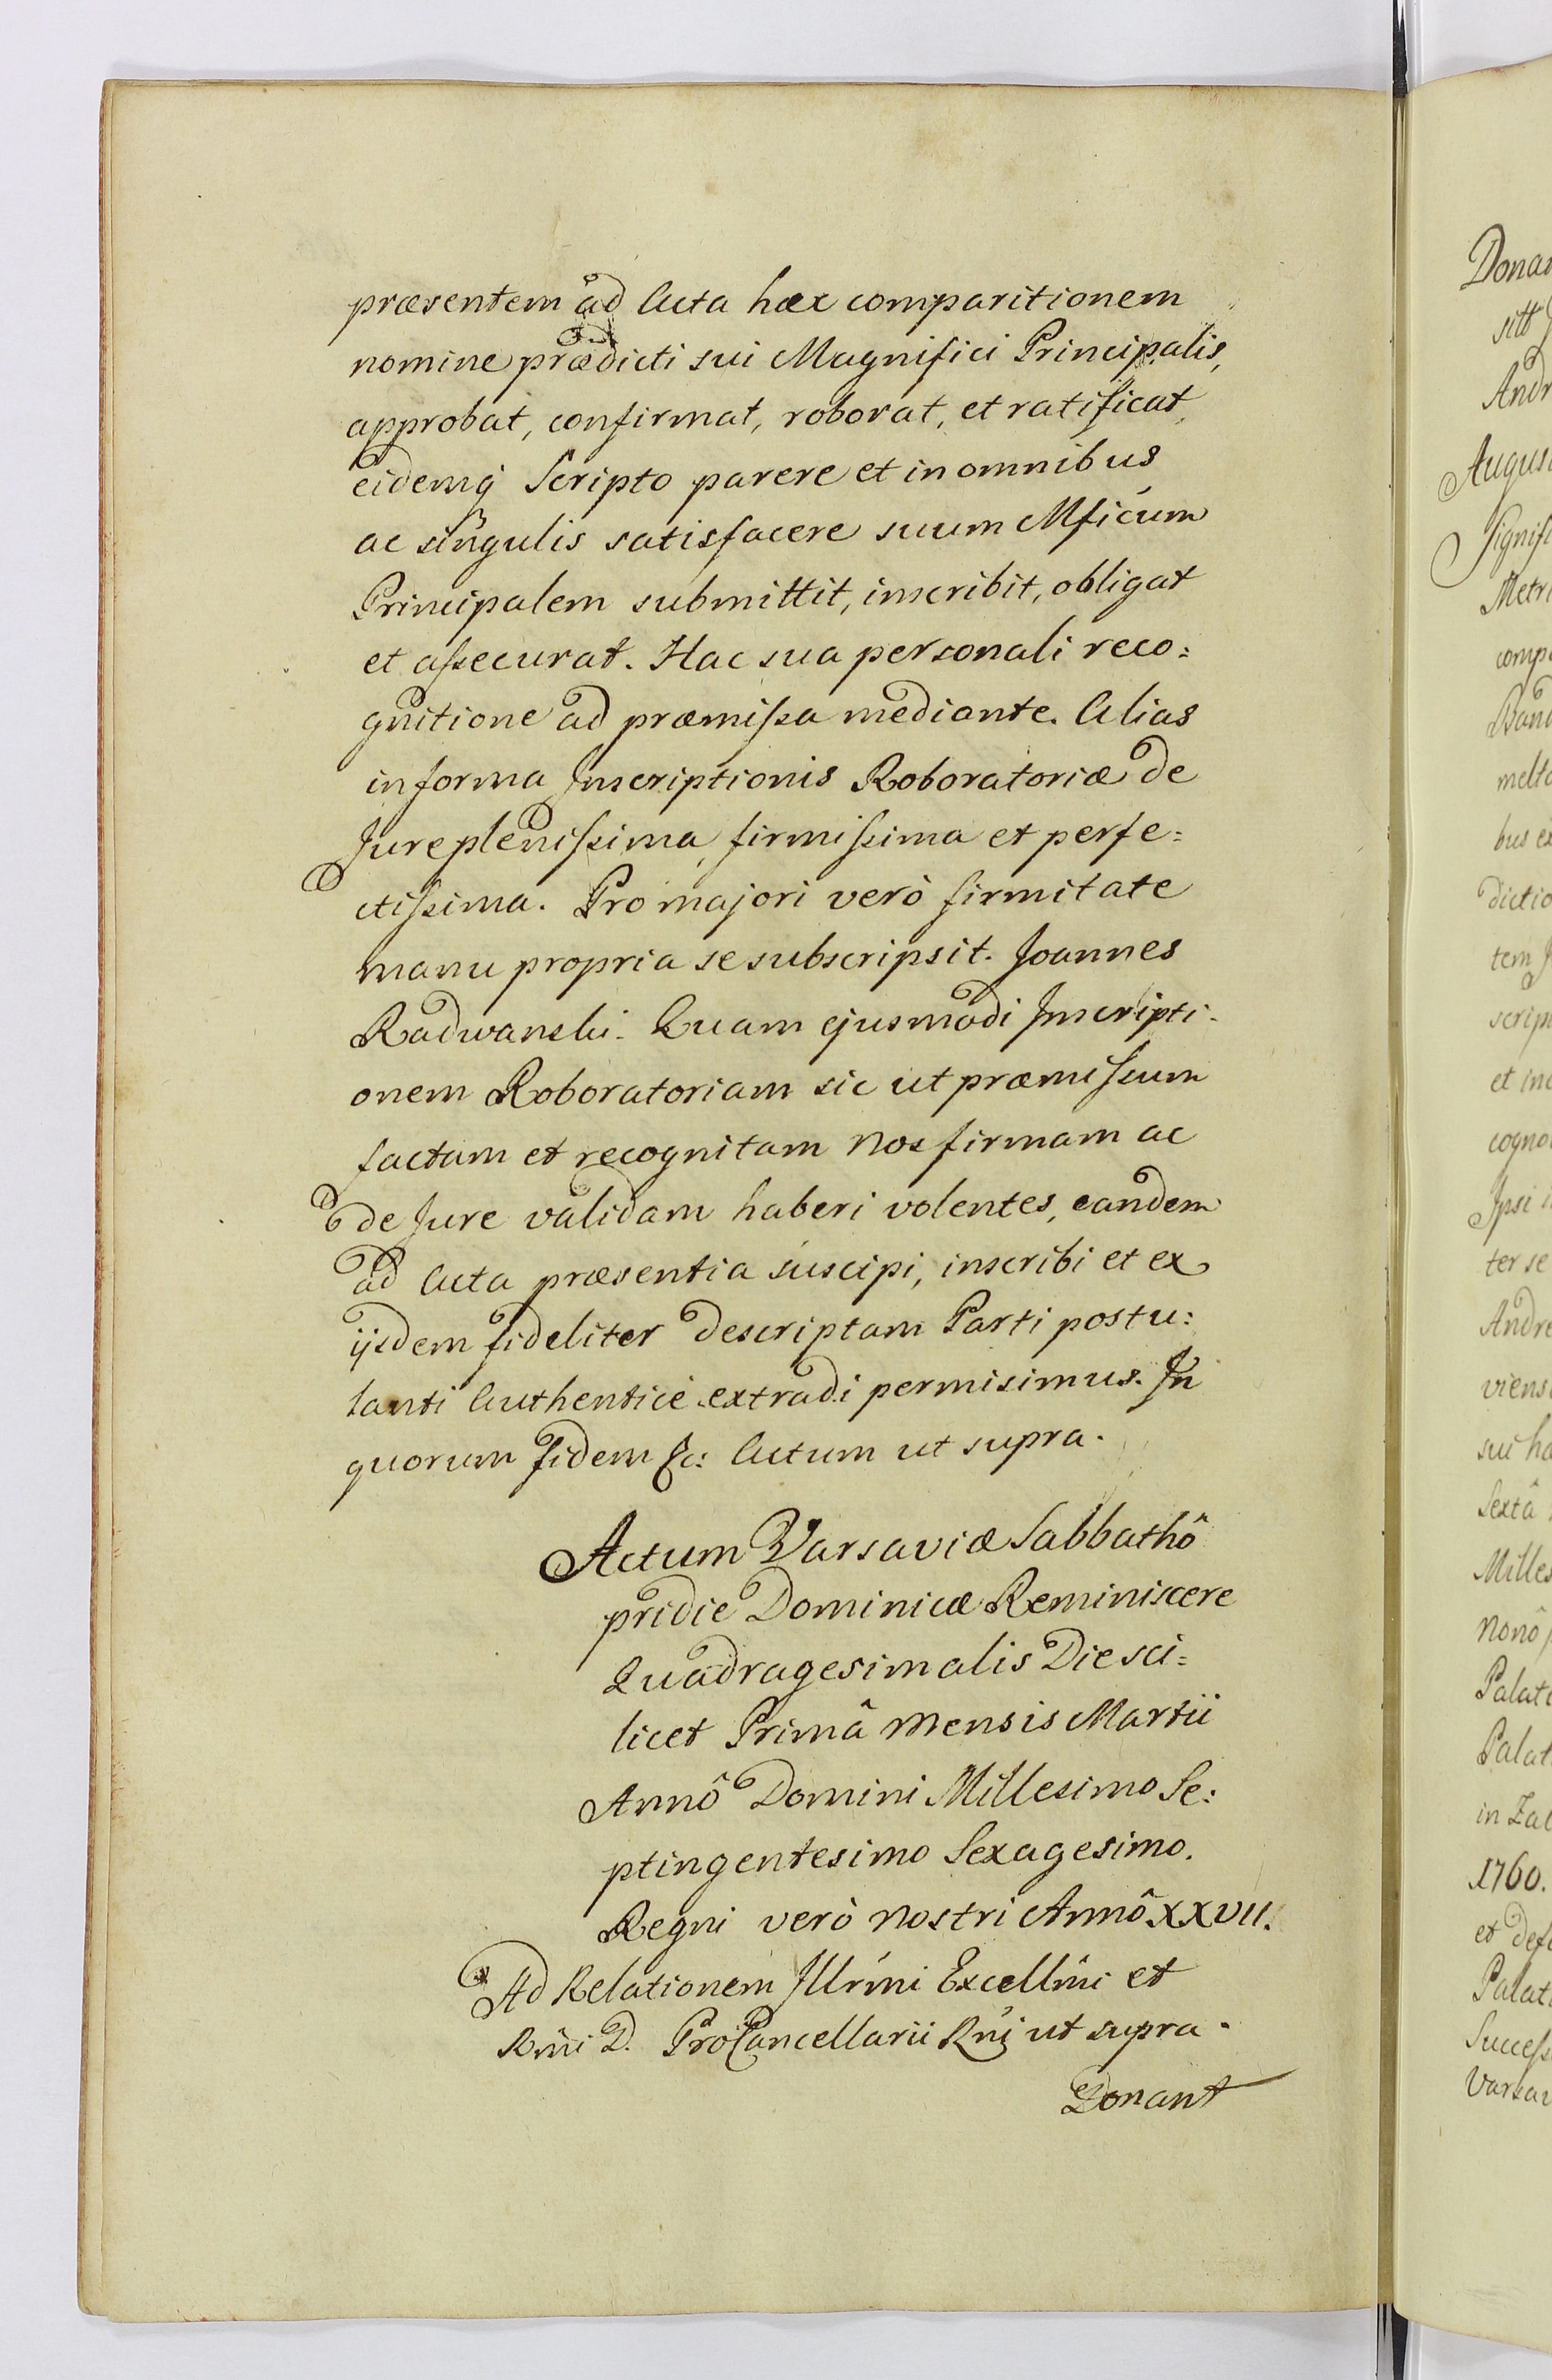 præsentem ad Acta hæc comparitionem
nomine prædicti sui Magnifici Principalis,
approbat, confirmat, roborat, et ratificat,
eidemq́ Scripto parere et in omnibus
ac singulis satisfacere suum Mficum
Principalem submittit, inscribit, obligat
et assecurat. Hac sua personali reco=
gnitione ad præmissa mediante. Alias
in forma Inscriptionis Roboratoriæ de
Jure plenissima, firmissima et perfe=
ctissima. Pro majori verò firmitate
manu propria se subscripsit. Joannes
Radwanski. Quam ejusmodi Inscripti-
onem Roboratoriam sic ut præmissum
factam et recognitam Nos firmam ac
de Jure validam haberi volentes, eandem
ad Acta præsentia suscipi, inscribi et ex
ijsdem fideliter descriptam Parti postu=
lanti Authenticè extradi permisimus. In
quorum fidem &c: Actum ut supra.
Actum Varsaviæ Sabbathô
pridie Dominicæ Reminiscere
Quadragesimalis Die sci=
licet Primâ Mensis Martii
Annô Domini Millesimo Se:
ptingentesimo Sexagesimo.
Regni verò Nostri Annô XXVII.
Ad Relationem Illrmi Excellmi et
Rmi D. ProCancellarii Rni ut supra.
Donant
Donat
Andr
August
Signifi
Metri
comp
melt
bus ex
dictio
tem J
scrip
et in
cogno
Ipsi
ter se
Andre
viens
sui ha
Sextâ
Milles
Nonô
Palat
Palat
in Zal
1760.
et def
Palat
Success
Varsav